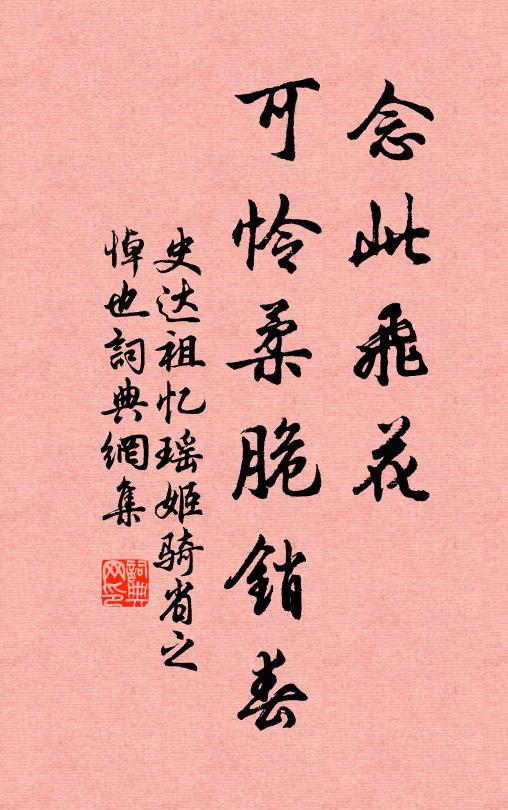 念此飛花
可怜柔脆銷春
史达祖忆瑶姬骑省之
悼也詞典網集
詞典
网印